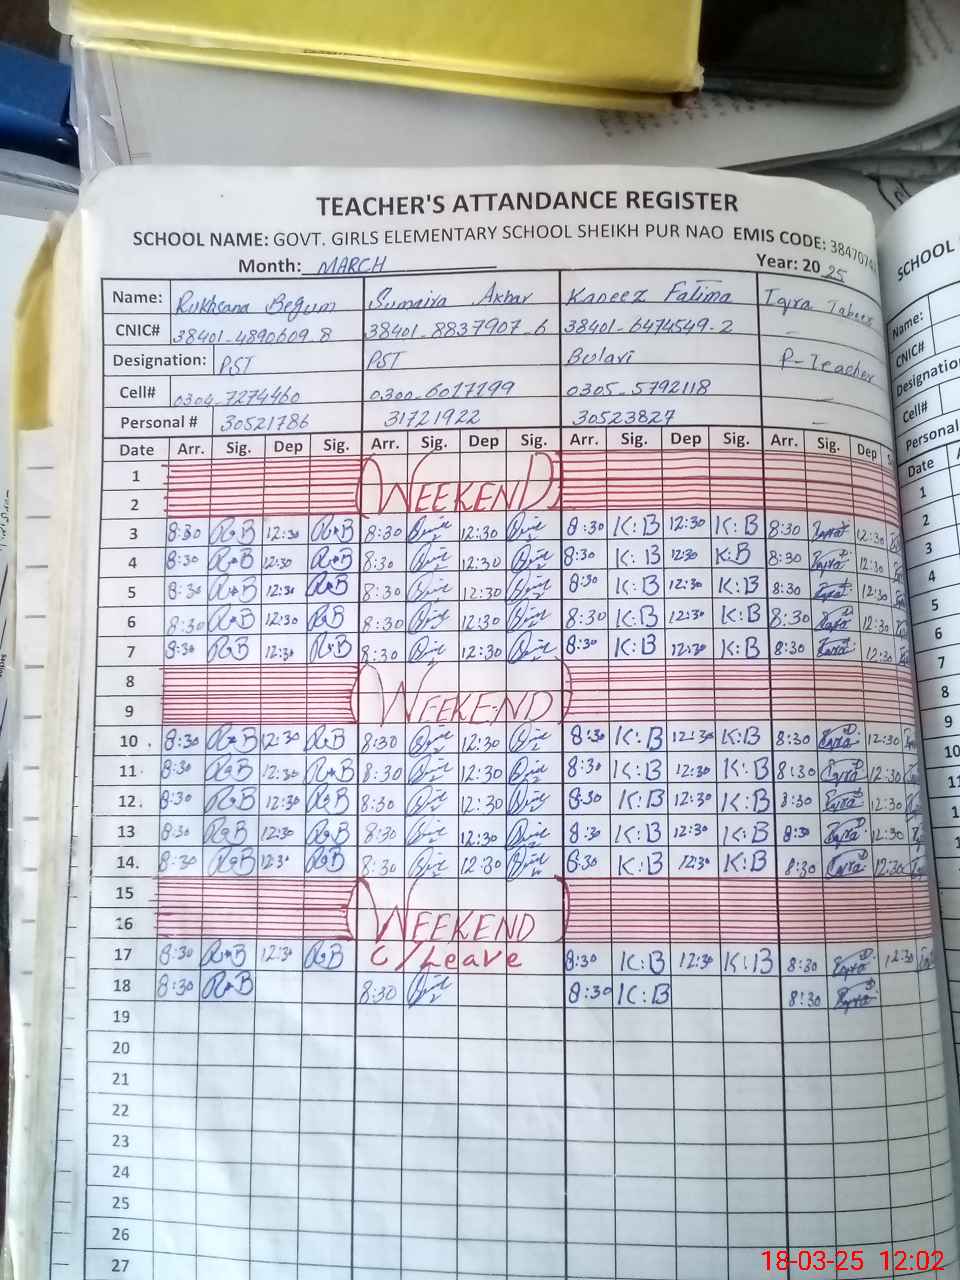 TEACHER'S ATTANDANCE REGISTER
SCHOOL NAME: GOVT. GIRLS ELEMENTARY SCHOOL SHEIKH PUR NAO EMIS CODE: 3847074
Month: MARCH Year: 20 25
Name: Rukhsana Begum Sumaira Akbar Kaneez Fatima Iqra
CNIC# 38401-4890609-8 38401-8837907-6 38401-6474549-2 -
Designation: PST PST Bulavi P-Teacher
Cell# 0304-7274460 0300-6017199 0305-5792118 -
Personal # 30521786 31721922 30523827 -
Date Arr. Sig. Dep Sig. Arr. Sig. Dep Sig. Arr. Sig. Dep Sig. Arr. Sig. Dep
1
2 WEEKEND
3 8:30 R.B 12:30 R.B 8:30 12:30 8:30 K:B 12:30 K:B 8:30 12:30
4 8:30 R.B 12:30 R.B 8:30 12:30 8:30 K:B 12:30 K:B 8:30 12:30
5 8:30 R.B 12:30 R.B 8:30 12:30 8:30 K:B 12:30 K:B 8:30 12:30
6 8:30 R.B 12:30 R.B 8:30 12:30 8:30 K:B 12:30 K:B 8:30 12:30
7 8:30 R.B 12:30 R.B 8:30 12:30 8:30 K:B 12:30 K:B 8:30 12:30
8
9 WEEKEND
10 8:30 R.B 12:30 R.B 8:30 12:30 8:30 K:B 12:30 K:B 8:30 12:30
11 8:30 R.B 12:30 R.B 8:30 12:30 8:30 K:B 12:30 K:B 8:30 12:30
12 8:30 R.B 12:30 R.B 8:30 12:30 8:30 K:B 12:30 K:B 8:30 12:30
13 8:30 R.B 12:30 R.B 8:30 12:30 8:30 K:B 12:30 K:B 8:30 12:30
14 8:30 R.B 12:30 R.B 8:30 12:30 8:30 K:B 12:30 K:B 8:30 12:30
15
16 WEEKEND
17 8:30 R.B 12:30 R.B C/Leave 8:30 K:B 12:30 K:B 8:30 12:30
18 8:30 R.B 8:30 8:30 K:B 8:30
19
20
21
22
23
24
25
26
27
SCHOOL
Name:
CNIC#
Designation
Cell#
Personal
Date
1
2
3
4
5
6
7
8
9
10
11
12
13
14
15
16
17
18-03-25 12:02